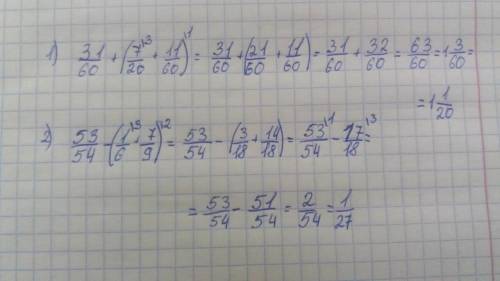 1) 31/60 + (7/20\3 + 11/60\1) = 31/60 + (21/60 + 11/60) = 31/60 + 32/60 = 63/60 = 1 3/60 =
= 1 1/20
2) 53/54 - (1/6\3 + 7/9\2) = 53/54 - (3/18 + 14/18) = 53/54\1 - 17/18\3 =
= 53/54 - 51/54 = 2/54 = 1/27